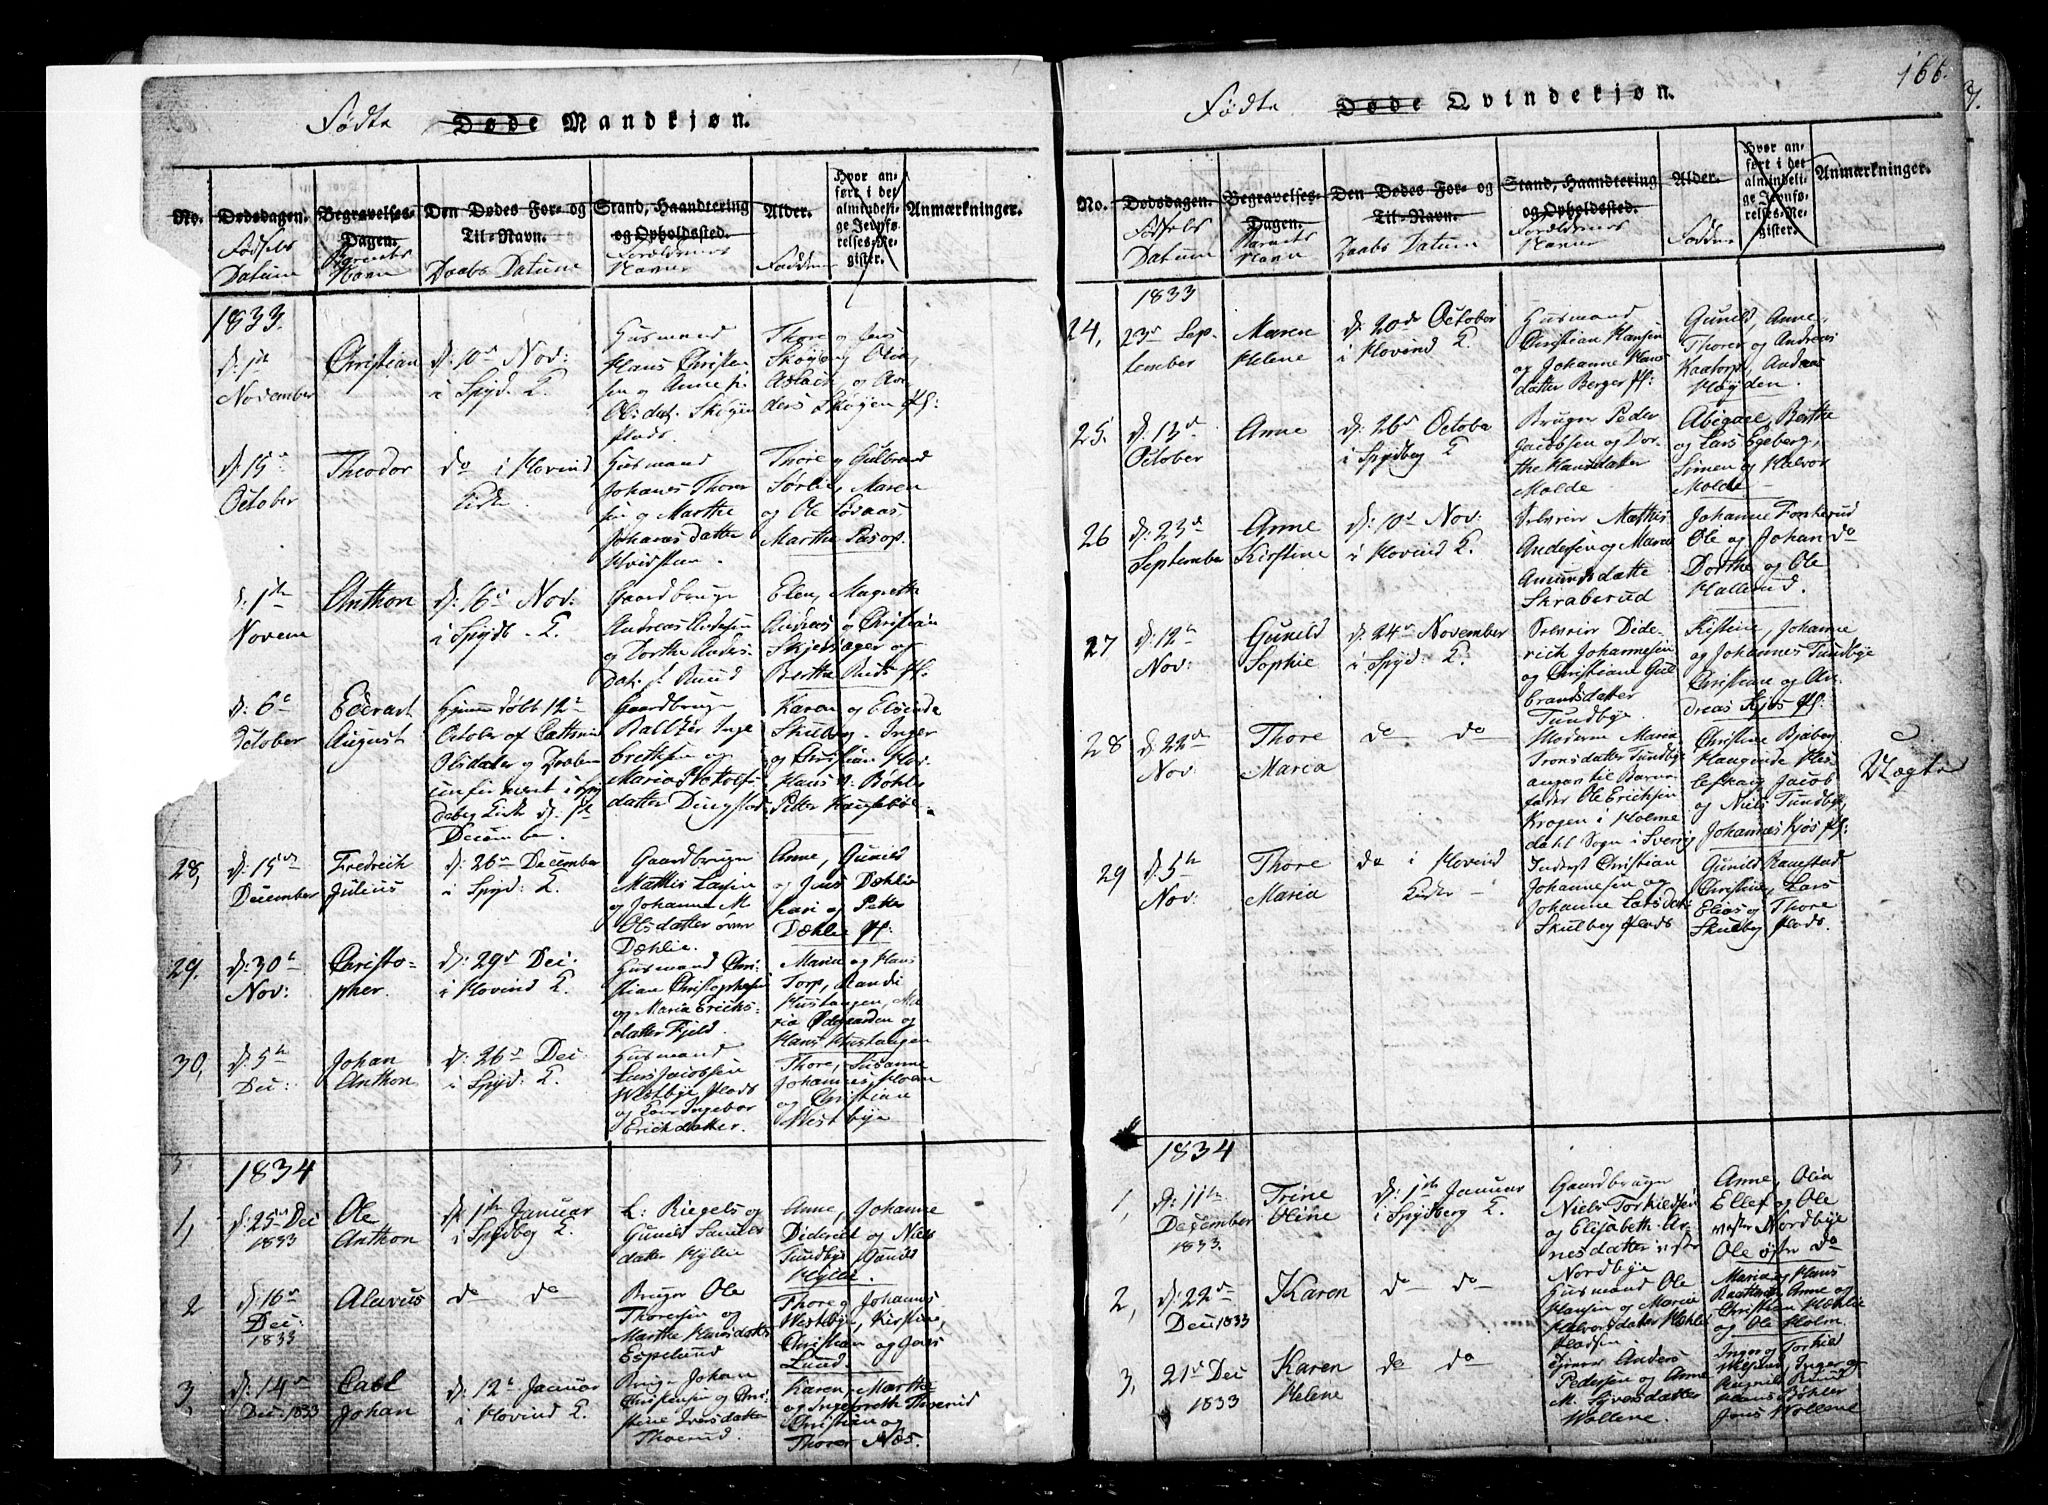 166.
Fødte Døde Mandkjøn.
No.
Dødsdagen.
Fødsels
Datum
Begravelses-
Dagen.
Barnets
Navn
Den Dødes For- og
Til-Navn.
Daabs Datum
Stand, Haandtering
og Opholdssted.
Forældrenes
Navne
Alder.
Fadder
Hvor an-
ført i det
almindeli-
ge Jevnfø-
relses-Re-
gister.
Anmærkninger.
1833.
d: 1ste
November
Christian
d: 10de Nov:
i Spyd. K.
Huusmand
Hans Christen
sen og Anne
Olsdat. Skøyen
plads.
Thore og Jens
Skøyen, Olia,
Aslach, og An-
ders Skøyen pl:
d: 15de
October
Theodor
do i Hovind
Kirke
Huusmand
Johanes Thore
sen og Marthe
Johanesdatter
Hvidsteen.
Thore og Gulbrand
Sørlie, Maren
og Ole Løvaas,
Marthe Pasop.
d: 1ste
Novem
Anthon
d: 16de Nov:
i Spydb. K.
Gaardbruger
Andreas Andersen
og Dorthe Anders-
Dat: Ruud
Elen, Magrethe
Andreas og Christian
Skjersager og
Berthe Ruds pl:
d: 6te
October
Edevart
August
Hjemmedøbt 12te
October af Cathrine
Olsdatter og Daaben
confirmert i Spy
deberg Kirke d: 1ste
December.
Gaardbruger
Baltzer Inge
brethsen og
Maria Petersen
datter Dingstad
Karen og Elsenda
Skulberg. Inger
og Christian Hov
Hans v: Bøhle
Petter Haugsbøe.
28,
d: 15de
December
Fredrich
Julius
d: 26de December
i Spyd: K.
Gaardbruger
Mathis Larsen
og Johanne M.
Olsdatter øvre
Dæhlie.
Anne, Gunild
og Jens Dæhlie
Kari og Petter
Dæhlie pl:
29.
d: 30te
Nov:
Christo-
pher.
d: 29de Dec:
i Hovind K.
Huusmand Chri-
stian Christophersen
og Maria Erichs-
datter Fjeld.
Maria og Hans
Torp, Randi
Hustangen, Ma-
ria Ødegaarden og
Hans Hustangen
30,
d: 5te
Dec:
Johan
Anthon
d: 26de Dec:
i Spyd: K.
Huusmand
Lars Jacobsen
Westbye plads
og Ingebor
Erichdatter.
Thore, Susanne
Johannes, Holen
og Christian
Westbye
1834
1,
d: 25de Dec
1833
Ole
Anthon
d: 1ste Januar
i Spydberg K.
L: Riegels og
Gunild Samuels
datter Hyllie
Anne, Johanne
Diderich og Niels
Tundbye
Hyllie.
2
d: 16de
Dec:
1833
Alavus
do do
Bruger Ole
Thoresen og
Marthe Hansdatter
Espelund
Thore og Johannes
Westbye, Kirstine,
Christian og Jens
Lund
3,
d: 14de
Dec: 1833
Carl
Johan
d: 12te Januar
i Hovind K.
Bruger Johan
Christensen og Chri-
stine Iversdatter
Thverud.
Karen, Marthe
og Ingebreth Thverud
Christian og
Thorer Næs.
Fødte Døde Qvindekjøn.
No.
Dødsdagen.
Fødsels
Datum
Begravelses-
Dagen.
Barnets
Navn
Den Dødes For- og
Til-Navn.
Daabs Datum
Stand, Haandtering
og Opholdssted.
Forældrenes
Navne
Alder.
Fadder
Hvor an-
ført i det
almindeli-
ge Jevnfø-
relses-Re-
gister.
Anmærkninger.
1833
24,
23de Sep-
tember
Maren
Helene
d: 20de October
i Hovind K.
Huusmand
Christian Hansen
og Johanne Hans
datter Berger pl:
Gunild, Anne,
Thorer og Andreas
Kaatorp, Andreas
Høyden.
25.
d: 13de
October
Anne
d: 26de October
i Spydberg K
Bruger Peder
Jacobsen og Dor-
the Hansdatter
Molde.
Abigael, Berthe
og Lars Egeberg,
Simen og Halvor
Molde
26
d: 23de
September
Anne
Kirstine
d: 10de Nov:
i Hovind K.
Selveier Mathis
Andersen og Maria
Amundsdatte
Skraberud
Johanne Fonkerud
Ole og Johan do
Dorthe og Ole
Hallerud.
27
d: 12te
Nov:
Gunild
Sophie
d: 24de November
i Spyd: K.
Selveier Dide-
rich Johannesen
og Christiane Gul
brandsdatter
Tundbye
Kistine, Johanne
og Johannes Tundbye
Christian og An-
dreas Kjos pl:
28
d: 22de
Nov:
Thore
Maria
do do
Moderen Maria
Tronsdatter Tundbye
angav til Barne
fader Ole Erichsen
Krogen i Holme
dahl Sogn i Sverig
Christine Bjaberg
Haugende Hes-
lefraig Jacob
og Niels Tundbye,
Johannes Kjos pl:
Uægte
29
d: 5te
Nov:
Thore
Maria
do i Hovind
Kirke
Inderst Christian
Johannesen og
Johanne Larsdat:
Skulberg plads
Gunild Ramstad
Christine, Lars
Elias og Thore
Skulberg plads.
1834
1,
d: 11te
December
1833.
Trine
Oline
d: 1ste Januar
i Spydberg K.
Gaardbruger
Niels Torkildsen
og Elisabeth Ar-
nesdatter vestre
Nordbye
Anne, Olia
Ellef og Ole
vestre Nordbye
Ole østre do
2,
d: 22de
Dec: 1833
Karen
do do
Huusmand Ole
Hansen og Maria
Halvorsdatter Hæhle
pladsen
Maria og Hans
Anne og
Christian Hæhlie
og Ole Holm
3,
21de Dec
1833
Karen
Helene
do do
Anders
Pedersen og Anne
M. Syversdatter
Wollene.
Inger og Torkild
Inger og
Hans Bøhler
Jens Wollene